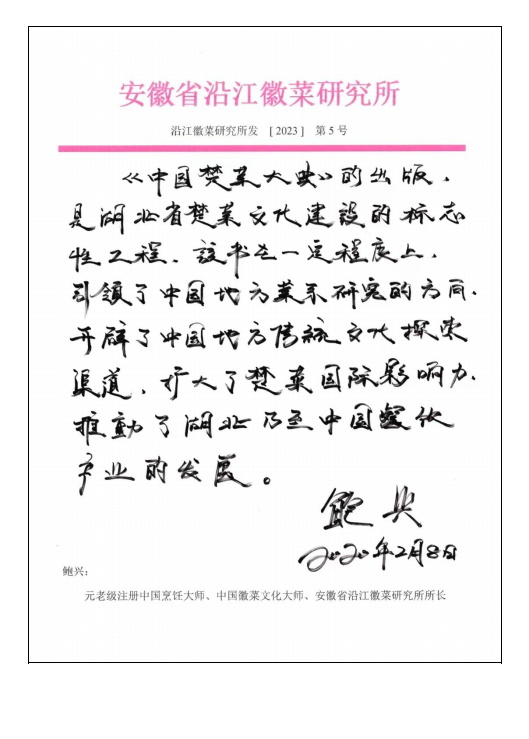 安徽省沿江徽菜研究所
沿江徽菜研究所发 [ 2023 ] 第 5 号
《中国楚菜大典》的出版，
是湖北省楚菜文化建設的标志
性工程。該书在一定程度上，
引領了中国地方菜系研究的方向，
开辟了中国地方传統文化探索
渠道，扩大了楚菜国际影响力，
推動了湖北乃至中国餐饮
产业的发展。
鲍兴
2020年2月8日
鲍兴：
元老级注册中国烹饪大师、中国徽菜文化大师、安徽省沿江徽菜研究所所长